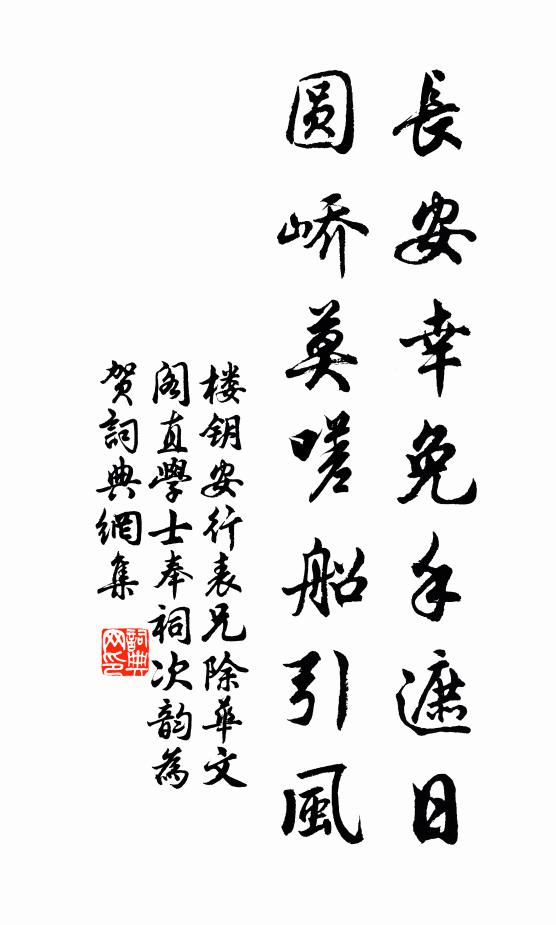 長安幸免手遮日
圆峤莫嗟船引風
楼钥安行表兄除華文
阁直學士奉祠次韵為
贺詞典網集
詞典网印